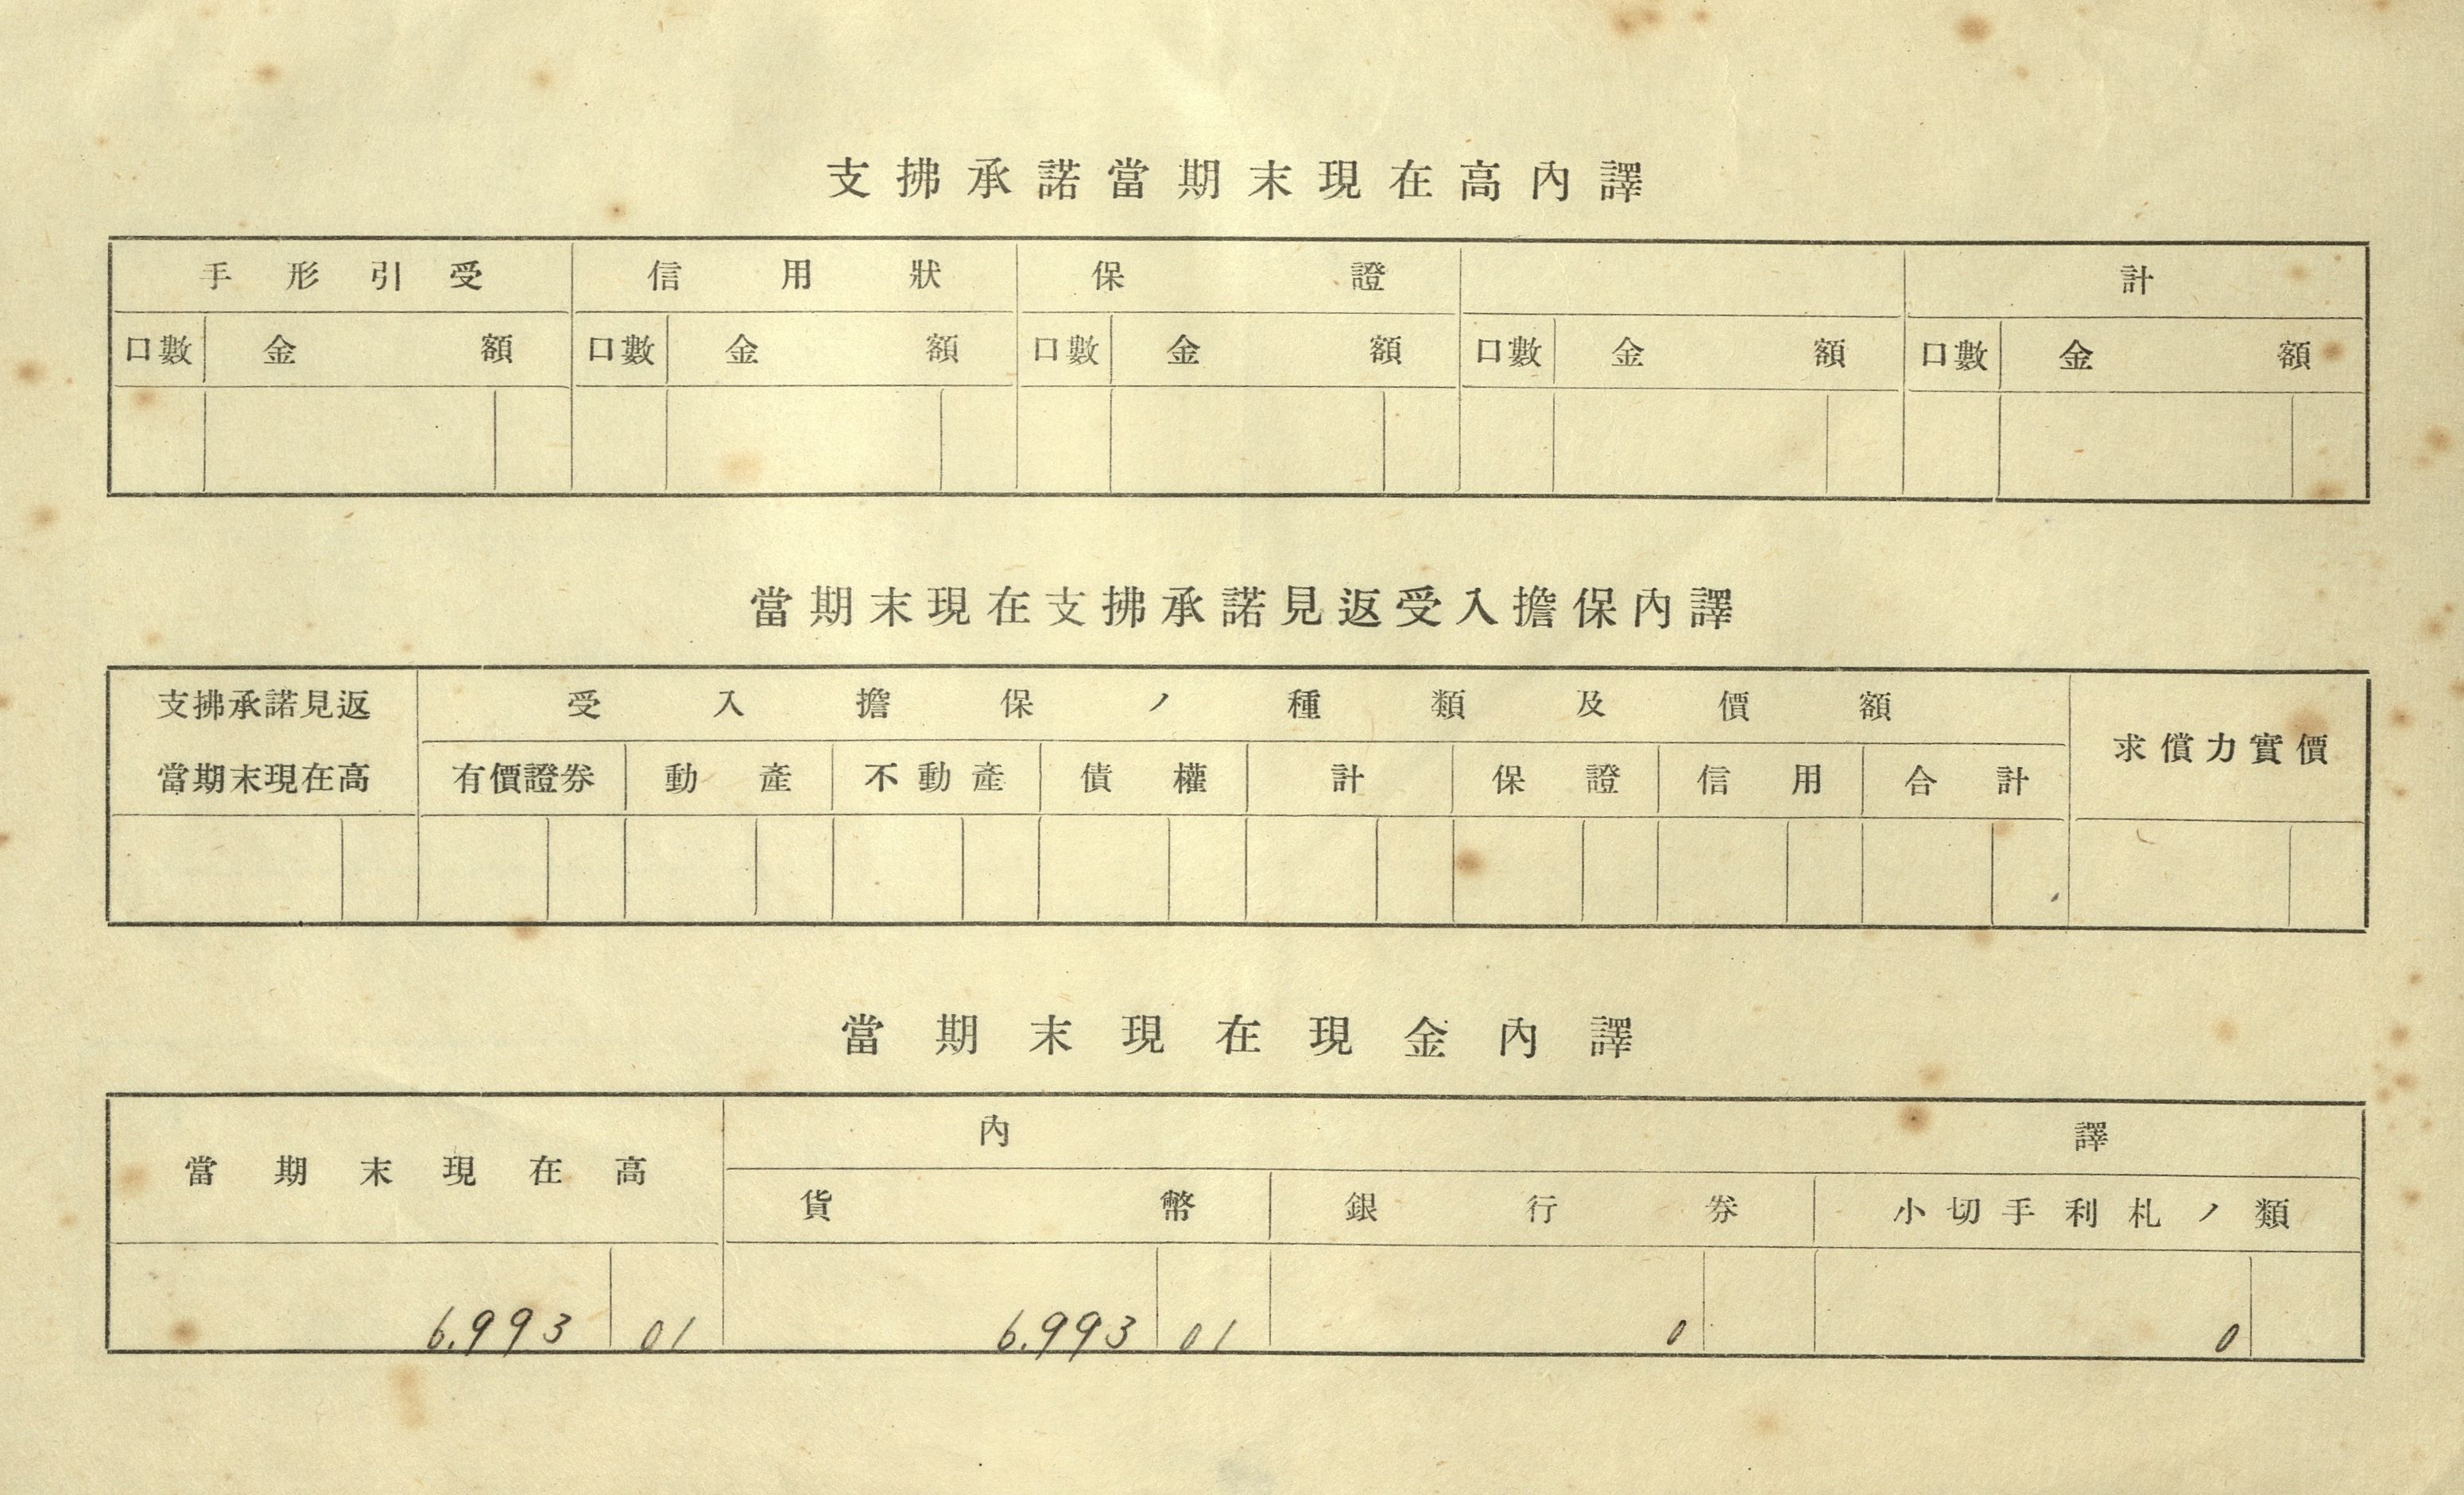 支拂承諾當期末現在高內譯
手形引受 信用狀 保證 計
口數 金額 口數 金額 口數 金額 口數 金額 口數 金額
當期末現在支拂承諾見返受入擔保內譯
支拂承諾見返 受入擔保ノ種類及價額
求償力實價
當期末現在高 有價證劵 動產 不動產 債權 計 保證 信用 合計
當期末現在現金內譯
內譯
當期末現在高
貨幣 銀行劵 小切手利札ノ類
6.993 01 6.993 01 0 0